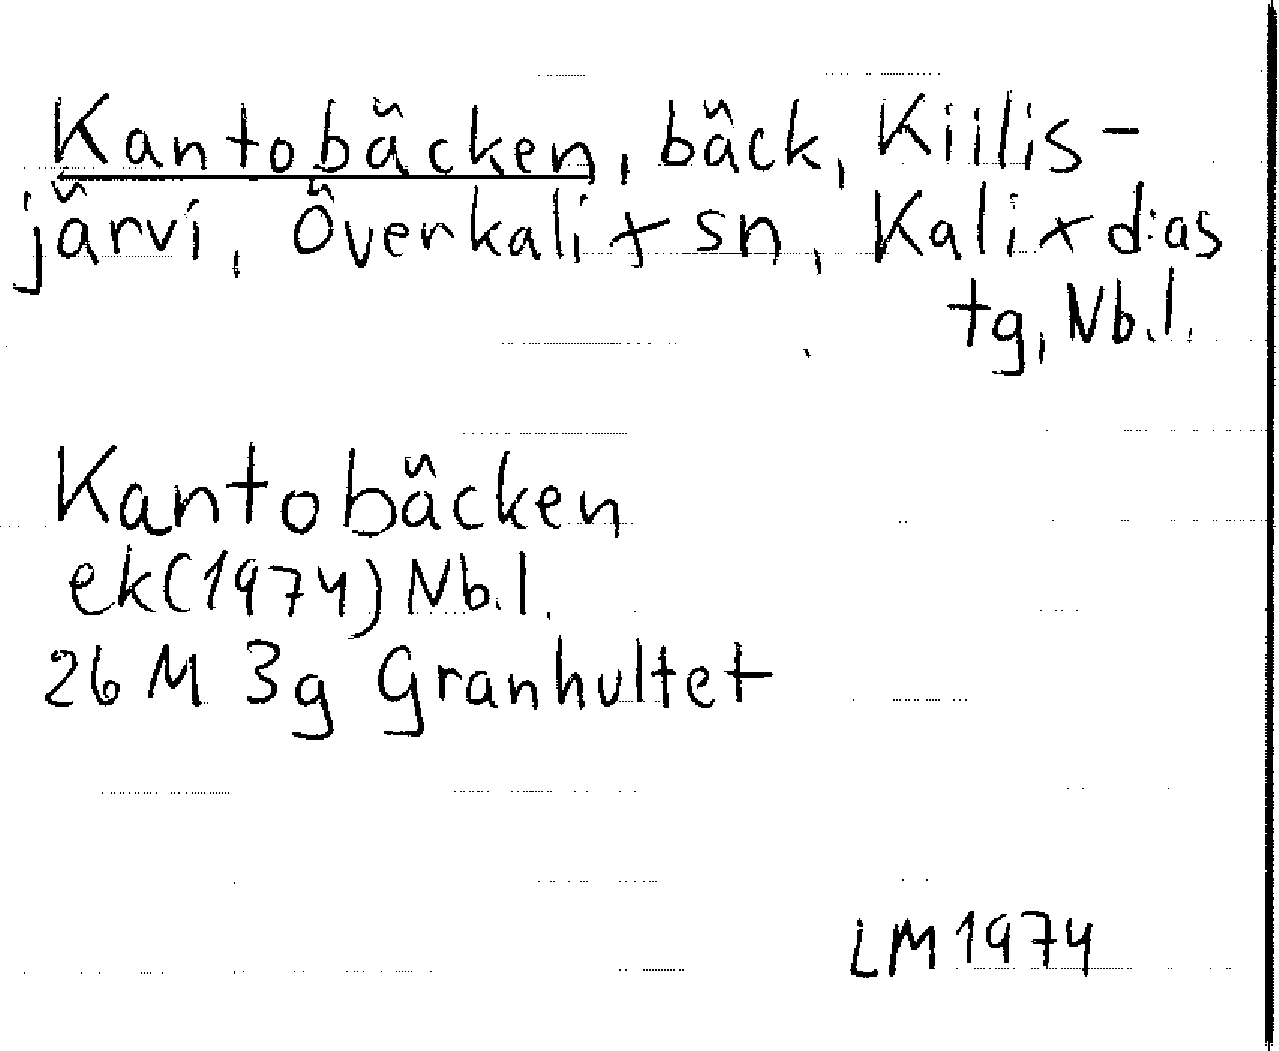 Kantobäcken, bäck, Kiilis-
järvi, Överkalix sn, Kalix d:as
tg, Nb.l.
Kantobäcken
ek(1974) Nb.l.
26 M 3g Granhultet
LM 1974